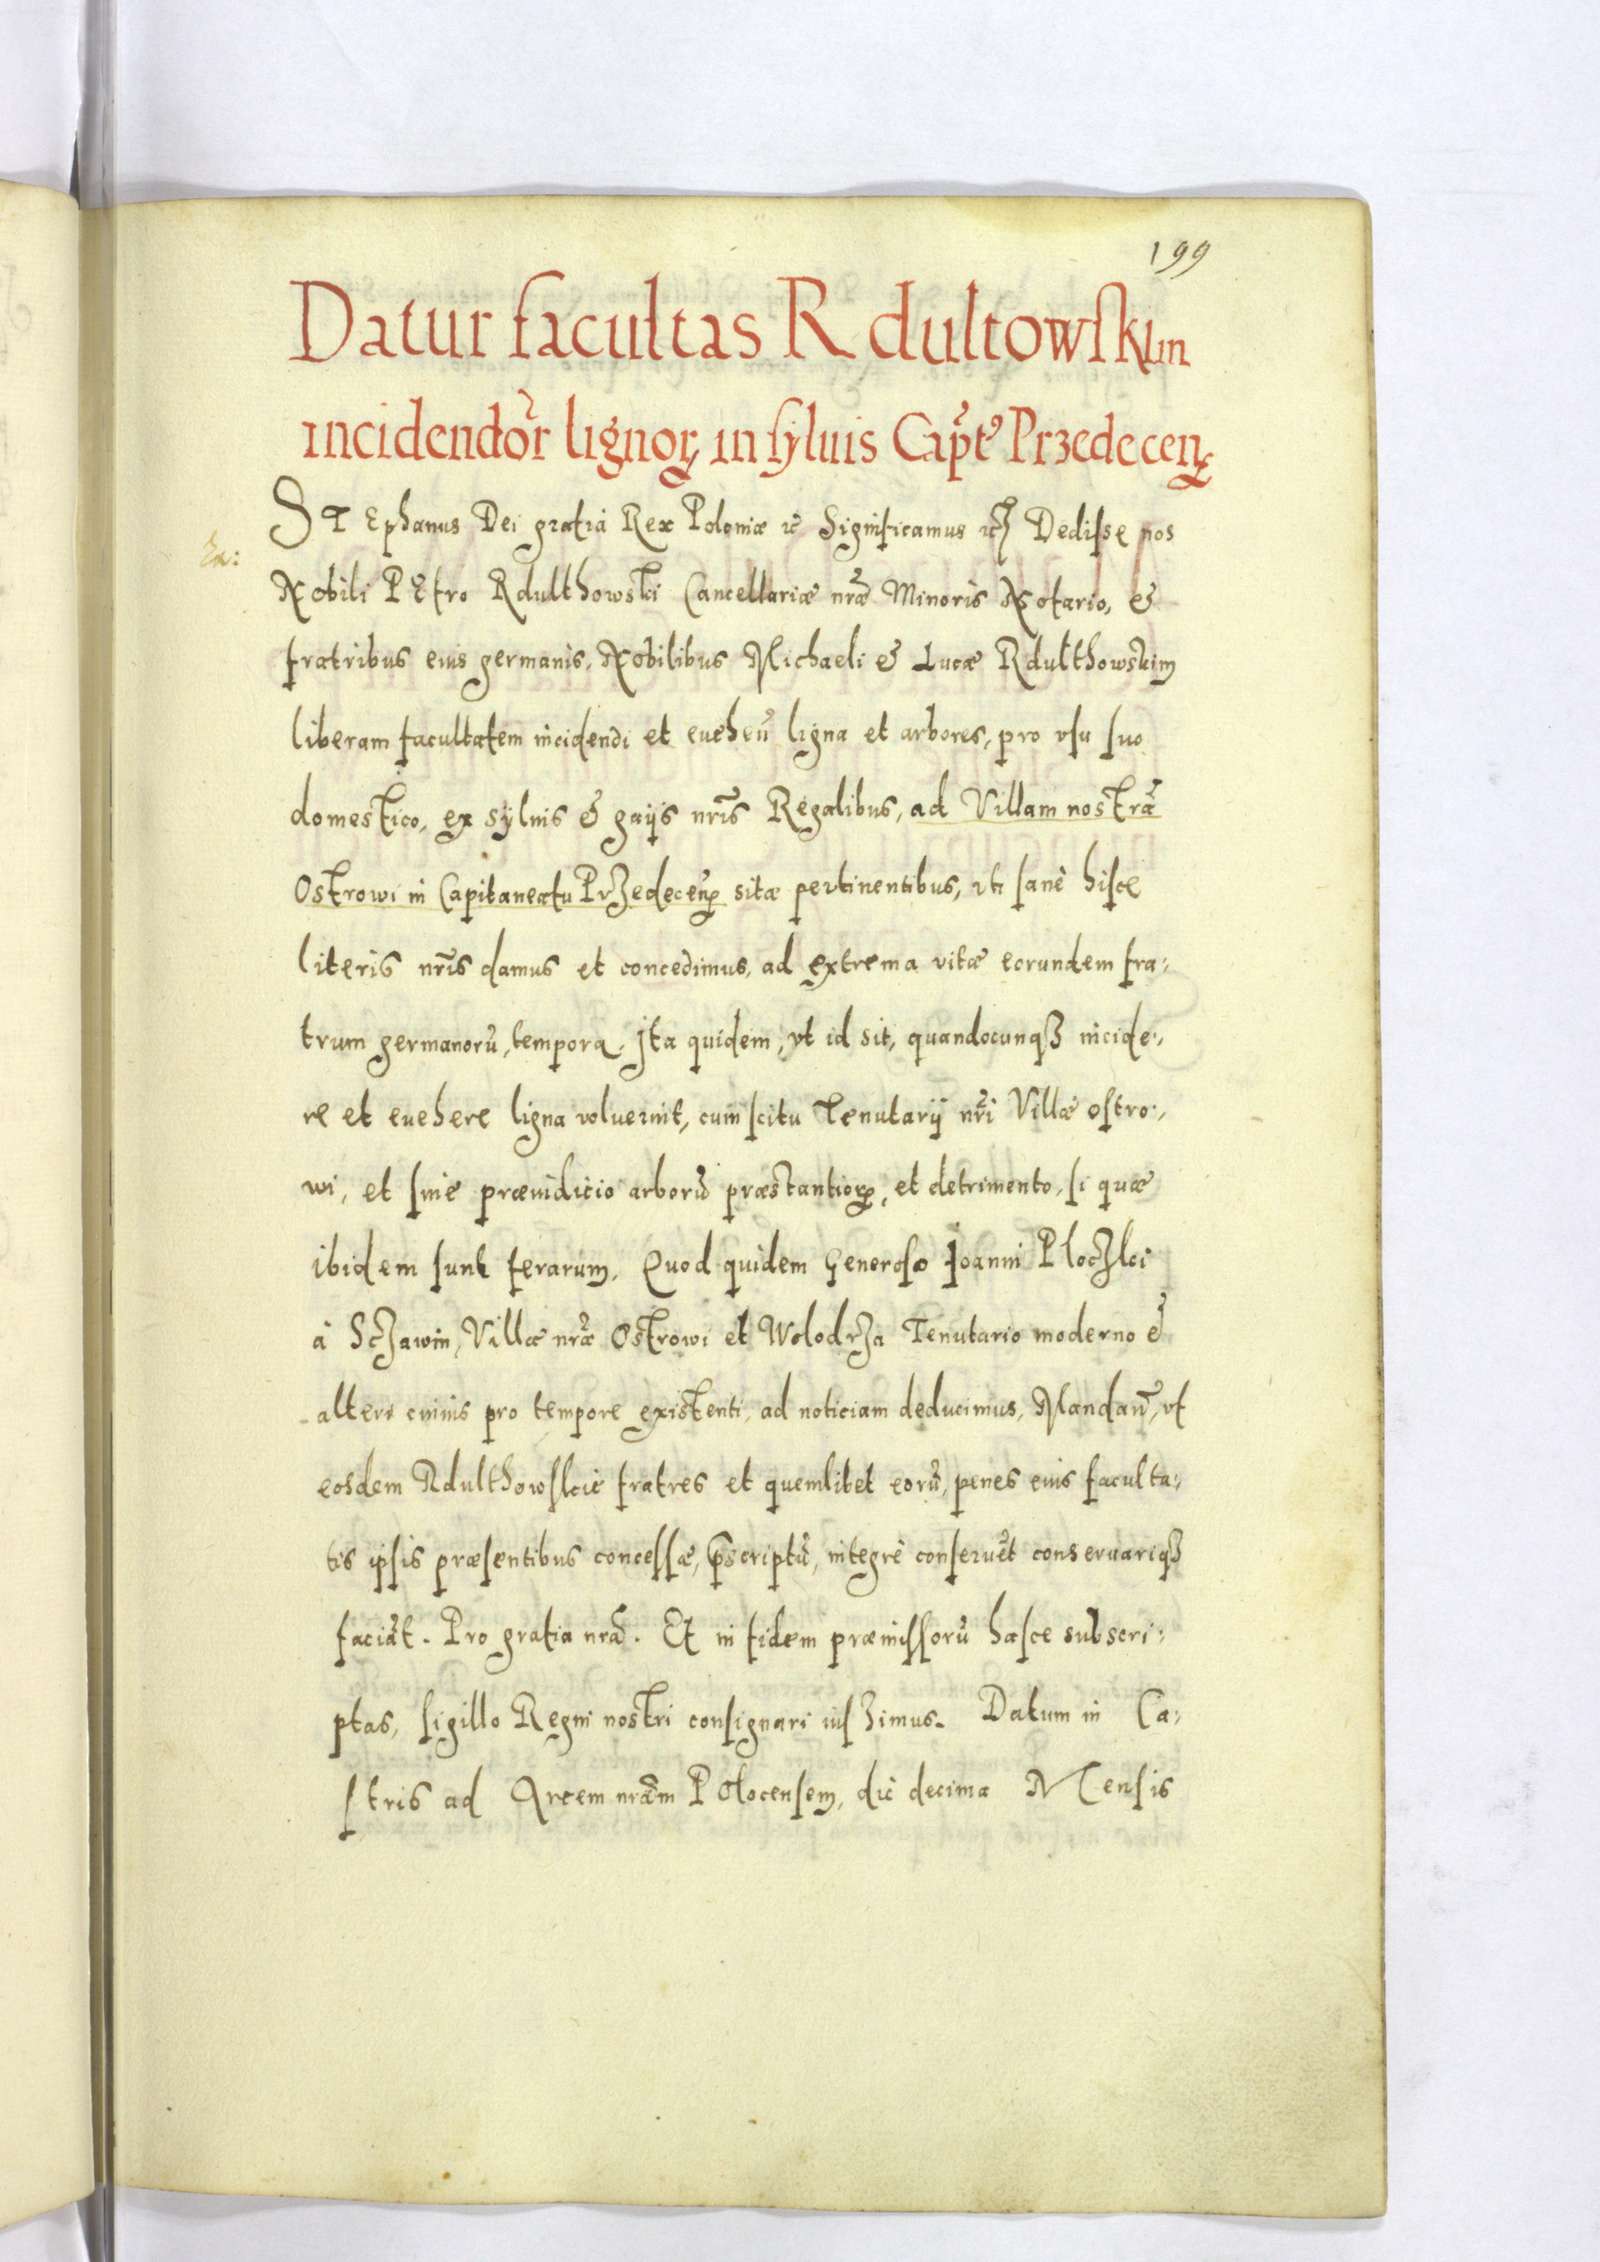 199
Datur facultas Rdultowskim
incidendor̃ lignor in syluis Capt̃ Przedecen
STEphanus Dei gratia Rex Poloniæ etc Significamus etc Dedisse nos
Nobili PEtro Rdulthowski Cancellariæ nræ Minoris Notario, &
fratribus eius germanis, Nobilibus Michaeli & Lucæ Rdulthowskim
liberam facultatem incidendi et eueheñ ligna et arbores, pro vsu suo
domestico, ex syluis & gaijs nris Regalibus, ad Villam nostrã
Ostrowi in Capitaneatu Przedecen sitæ pertinentibus, vti sanè hisce
literis nris damus et concedimus, ad extrema vitæ eorundem fra:
trum germanorũ, tempora. Ita quidem, vt id sit, quandocunqȝ incide:
re et euehere ligna voluerint, cum scitu Tenutarij nri Villæ ostro:
wi, et sine præiudicio arborũ præstantior, et detrimento, si quæ
ibidem sunt ferarum. Quod quidem Generoso Ioanni Płoczki
à Sczawin, Villæ nræ Ostrowi et Wolodrza Tenutario moderno &
alteri cuiuis pro tempore existenti, ad noticiam deducimus, Mandañ, vt
eosdem Rdulthowskie fratres et quemlibet eorũ, penes eius faculta:
tis ipsis præsentibus concessæ, pscriptũ, integrè conseruẽt conseruariqȝ
faciãt. Pro gratia nrã. Et in fidem præmissorũ hasce subscri:
ptas, sigillo Regni nostri consignari iussimus. Datum in Ca:
stris ad Arcem nram POlocensem, die decima Mensis